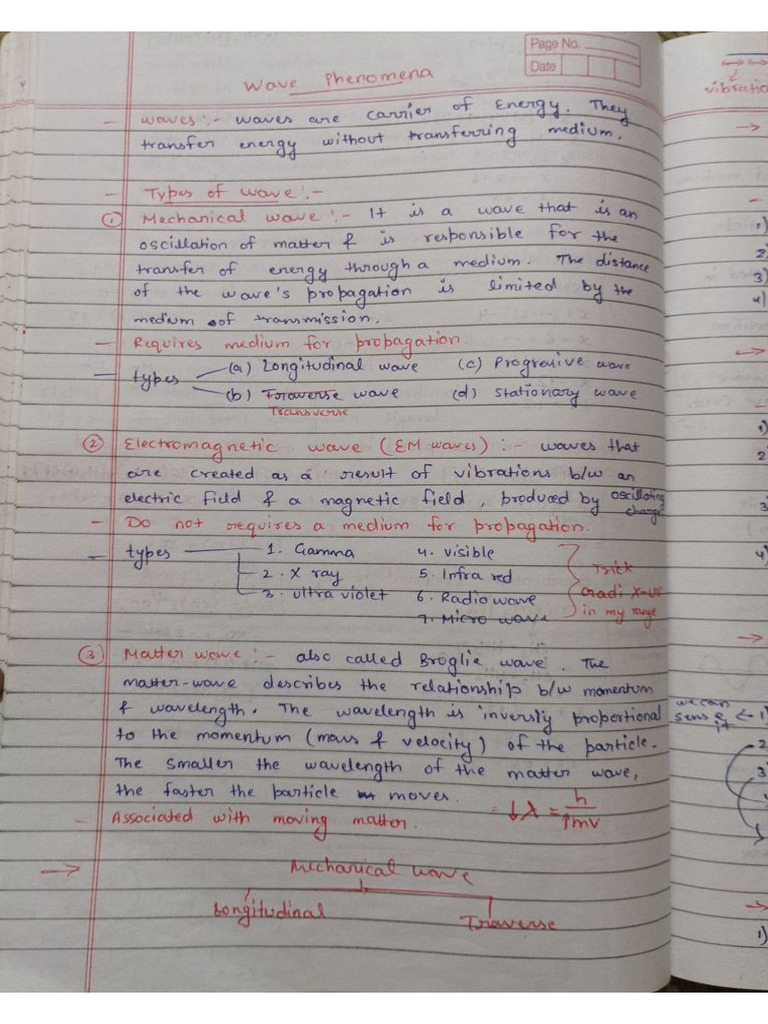 Page No.
Date
Wave Phenomena
- Waves :- waves are carrier of Energy. They
transfer energy without transferring medium.
- Types of wave :-
① Mechanical wave :- It is a wave that is an
oscillation of matter & is responsible for the
transfer of energy through a medium. The distance
of the wave's propagation is limited by the
medium of transmission.
- Requires medium for propagation
- types (a) Longitudinal wave (c) Progressive wave
(b) Traverse wave (d) Stationary wave
Transverse
② Electromagnetic wave (EM waves) :- waves that
are created as a result of vibrations b/w an
electric field & a magnetic field, produced by oscillating
charge
- Do not requires a medium for propagation.
- types 1. Gamma 4. visible
2. X ray 5. Infra red
3. ultra violet 6. Radio wave
7. Micro wave
Trick
radi X-UV
in my range
③ Matter wave :- also called Broglie wave. The
matter-wave describes the relationship b/w momentum
& wavelength. The wavelength is inversly proportional
to the momentum (mass & velocity) of the particle.
The smaller the wavelength of the matter wave,
the faster the particle moves. = ↓λ = h/↑mv
- Associated with moving matter.
→ Mechanical wave
Longitudinal Traverse
vibratio
→
-
1)
2)
3)
4)
→
1)
2
3
4)
→
we can
sense
it ← 1)
2
3
→
1)